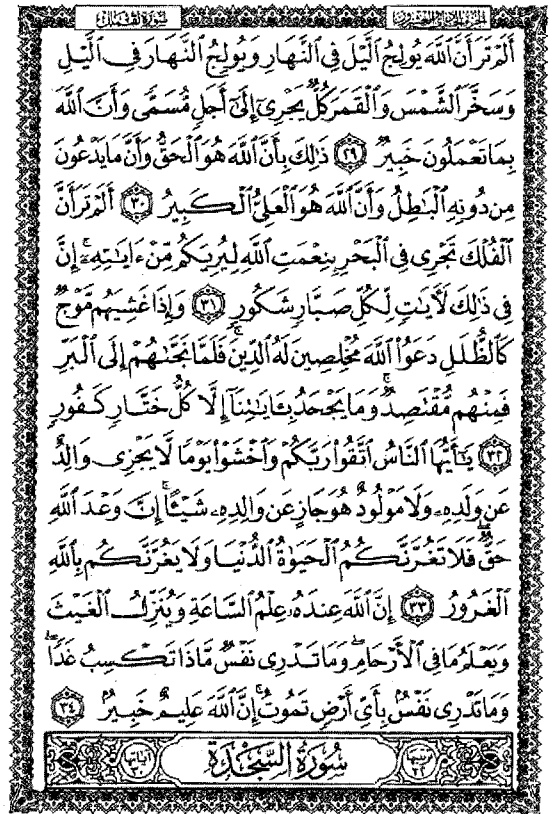 الجزء الحادي والعشرون
سورة لقمان
أَلَمْ تَرَ أَنَّ ٱللَّهَ يُولِجُ ٱلَّيْلَ فِى ٱلنَّهَارِ وَيُولِجُ ٱلنَّهَارَ فِى ٱلَّيْلِ
وَسَخَّرَ ٱلشَّمْسَ وَٱلْقَمَرَ كُلٌّ يَجْرِىٓ إِلَىٰٓ أَجَلٍ مُّسَمًّى وَأَنَّ ٱللَّهَ
بِمَا تَعْمَلُونَ خَبِيرٌ ٢٩ ذَٰلِكَ بِأَنَّ ٱللَّهَ هُوَ ٱلْحَقُّ وَأَنَّ مَا يَدْعُونَ
مِن دُونِهِ ٱلْبَٰطِلُ وَأَنَّ ٱللَّهَ هُوَ ٱلْعَلِىُّ ٱلْكَبِيرُ ٣٠ أَلَمْ تَرَ أَنَّ
ٱلْفُلْكَ تَجْرِى فِى ٱلْبَحْرِ بِنِعْمَتِ ٱللَّهِ لِيُرِيَكُم مِّنْ ءَايَٰتِهِۦٓ ۚ إِنَّ
فِى ذَٰلِكَ لَءَايَٰتٍ لِّكُلِّ صَبَّارٍ شَكُورٍ ٣١ وَإِذَا غَشِيَهُم مَّوْجٌ
كَٱلظُّلَلِ دَعَوُا۟ ٱللَّهَ مُخْلِصِينَ لَهُ ٱلدِّينَ فَلَمَّا نَجَّىٰهُمْ إِلَى ٱلْبَرِّ
فَمِنْهُم مُّقْتَصِدٌ ۚ وَمَا يَجْحَدُ بِـَٔايَٰتِنَآ إِلَّا كُلُّ خَتَّارٍ كَفُورٍ
٣٢ يَٰٓأَيُّهَا ٱلنَّاسُ ٱتَّقُوا۟ رَبَّكُمْ وَٱخْشَوْا۟ يَوْمًا لَّا يَجْزِى وَالِدٌ
عَن وَلَدِهِۦ وَلَا مَوْلُودٌ هُوَ جَازٍ عَن وَالِدِهِۦ شَيْـًٔا ۚ إِنَّ وَعْدَ ٱللَّهِ
حَقٌّ ۖ فَلَا تَغُرَّنَّكُمُ ٱلْحَيَوٰةُ ٱلدُّنْيَا وَلَا يَغُرَّنَّكُم بِٱللَّهِ
ٱلْغَرُورُ ٣٣ إِنَّ ٱللَّهَ عِندَهُۥ عِلْمُ ٱلسَّاعَةِ وَيُنَزِّلُ ٱلْغَيْثَ
وَيَعْلَمُ مَا فِى ٱلْأَرْحَامِ ۖ وَمَا تَدْرِى نَفْسٌ مَّاذَا تَكْسِبُ غَدًا ۖ
وَمَا تَدْرِى نَفْسٌۢ بِأَىِّ أَرْضٍ تَمُوتُ ۚ إِنَّ ٱللَّهَ عَلِيمٌ خَبِيرٌۢ ٣٤
ترتيبها ٣٢ سُورَةُ السَّجْدَةِ آياتها ٣٠